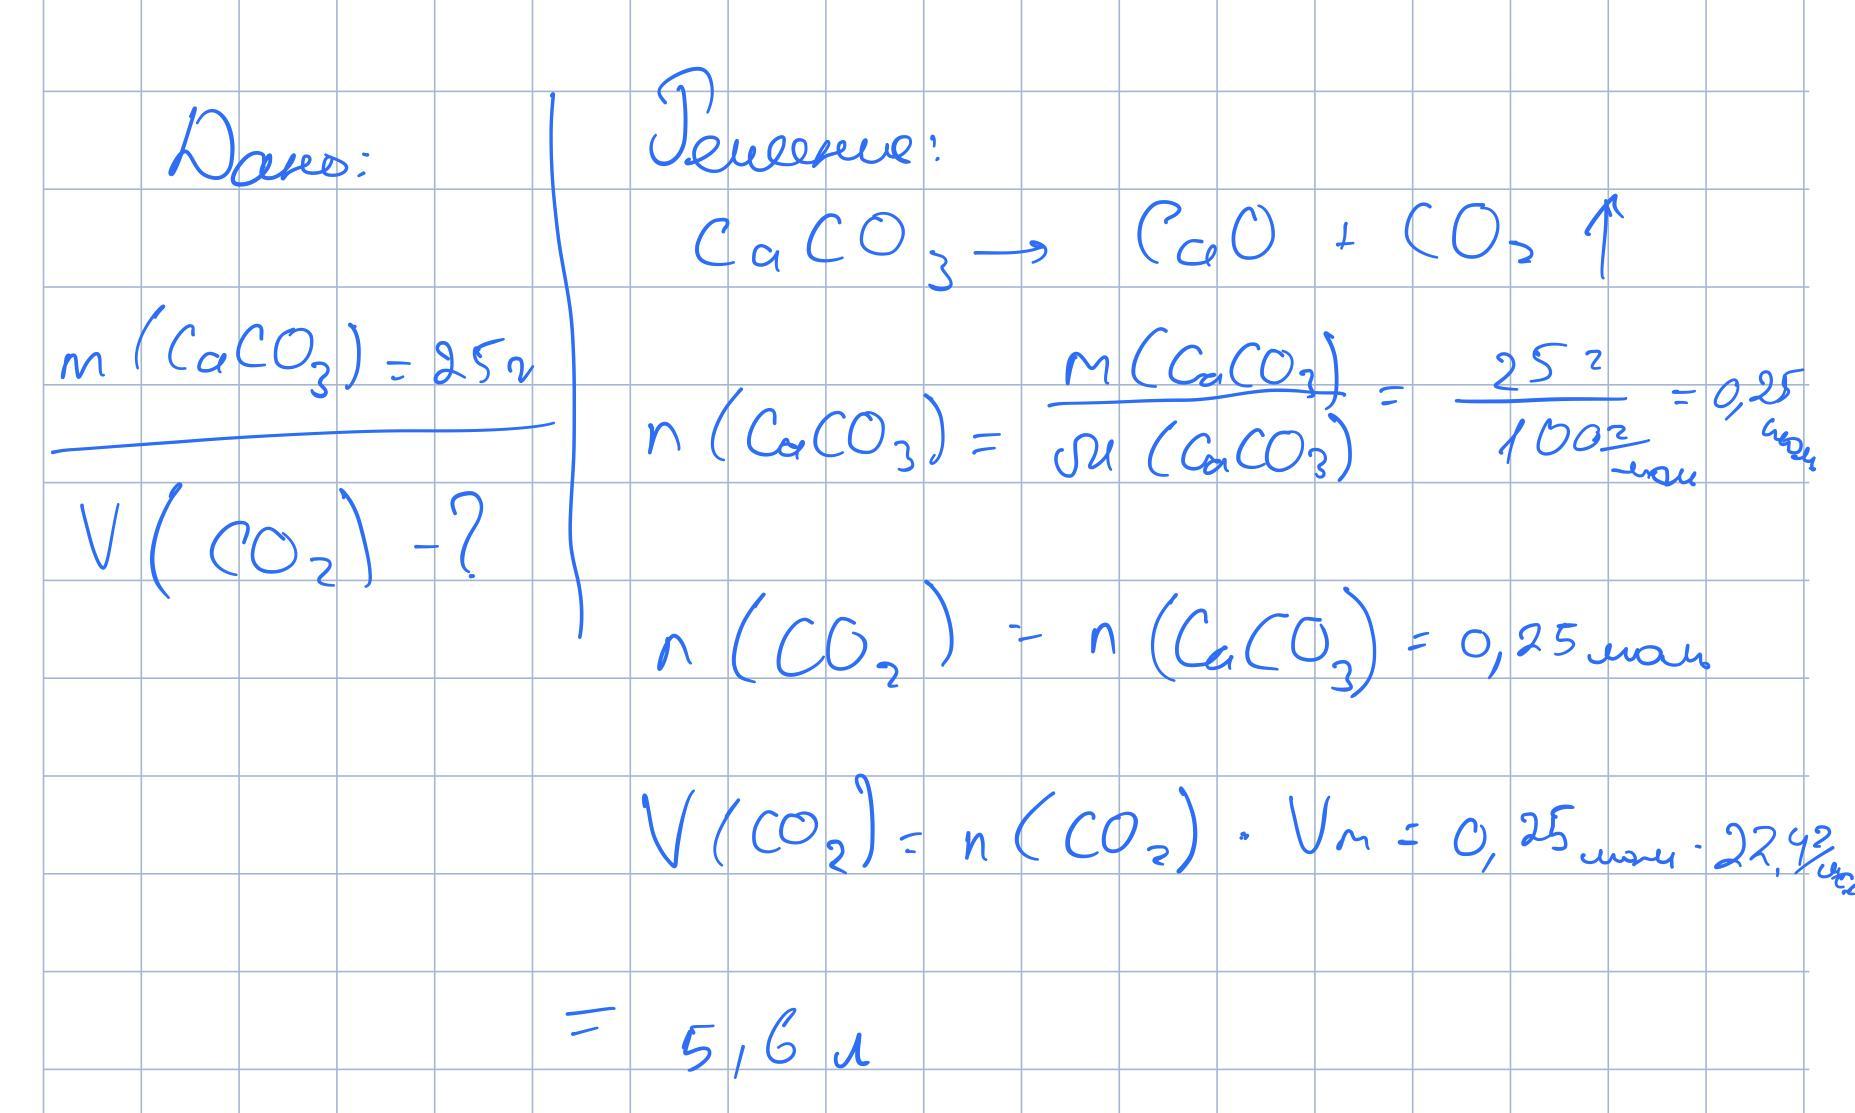 Дано:
m(CaCO₃) = 25г
V(CO₂) - ?
Решение:
CaCO₃ → CaO + CO₂ ↑
n(CaCO₃) = m(CaCO₃) / M(CaCO₃) = 25г / 100г/моль = 0,25 моль
n(CO₂) = n(CaCO₃) = 0,25 моль
V(CO₂) = n(CO₂) · Vm = 0,25 моль · 22,4л/моль
= 5,6 л